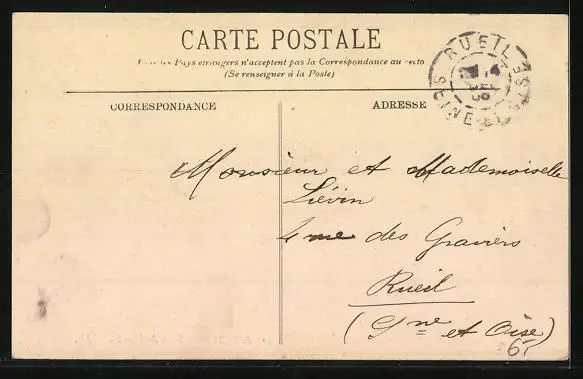 CARTE POSTALE
Tous les Pays étrangers n'acceptent pas la Correspondance au recto
(Se renseigner à la Poste)
CORRESPONDANCE
ADRESSE
RUEIL
SEINE-ET-OISE
Monsieur et Mademoiselle
Liévin
4 rue des Graviers
Rueil
(Sne et Oise)
65